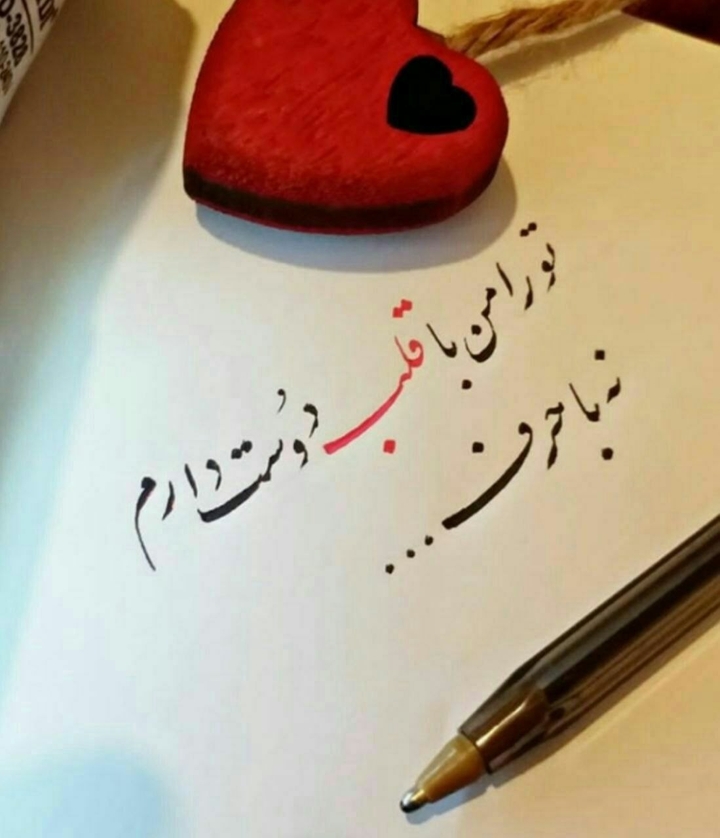 تو را من با قلب دوُست دارم
نه با حرف ...
0-3828